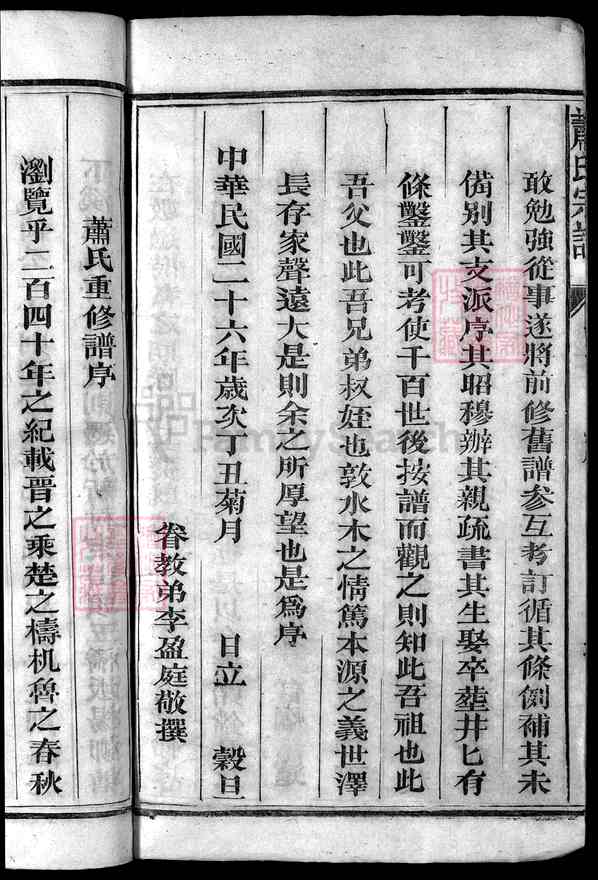 蕭氏宗譜
敢勉強從事遂將前修舊譜參互考訂循其條例補其未
備别其支派序其昭穆辦其親疏書其生娶卒塟井匕有
條鑿鑿可考使千百世後按譜而觀之則知此吾祖也此
吾父也此吾兄弟叔姪也敦水木之情篤本源之義世澤
長存家聲遠大是則余之所厚望也是爲序
中華民國二十六年歲次丁丑菊月 日立 穀旦
眷教弟李盈庭敬撰
蕭氏重修譜序
瀏覽乎二百四十年之紀載晋之乘楚之檮杌魯之春秋
FamilySearch